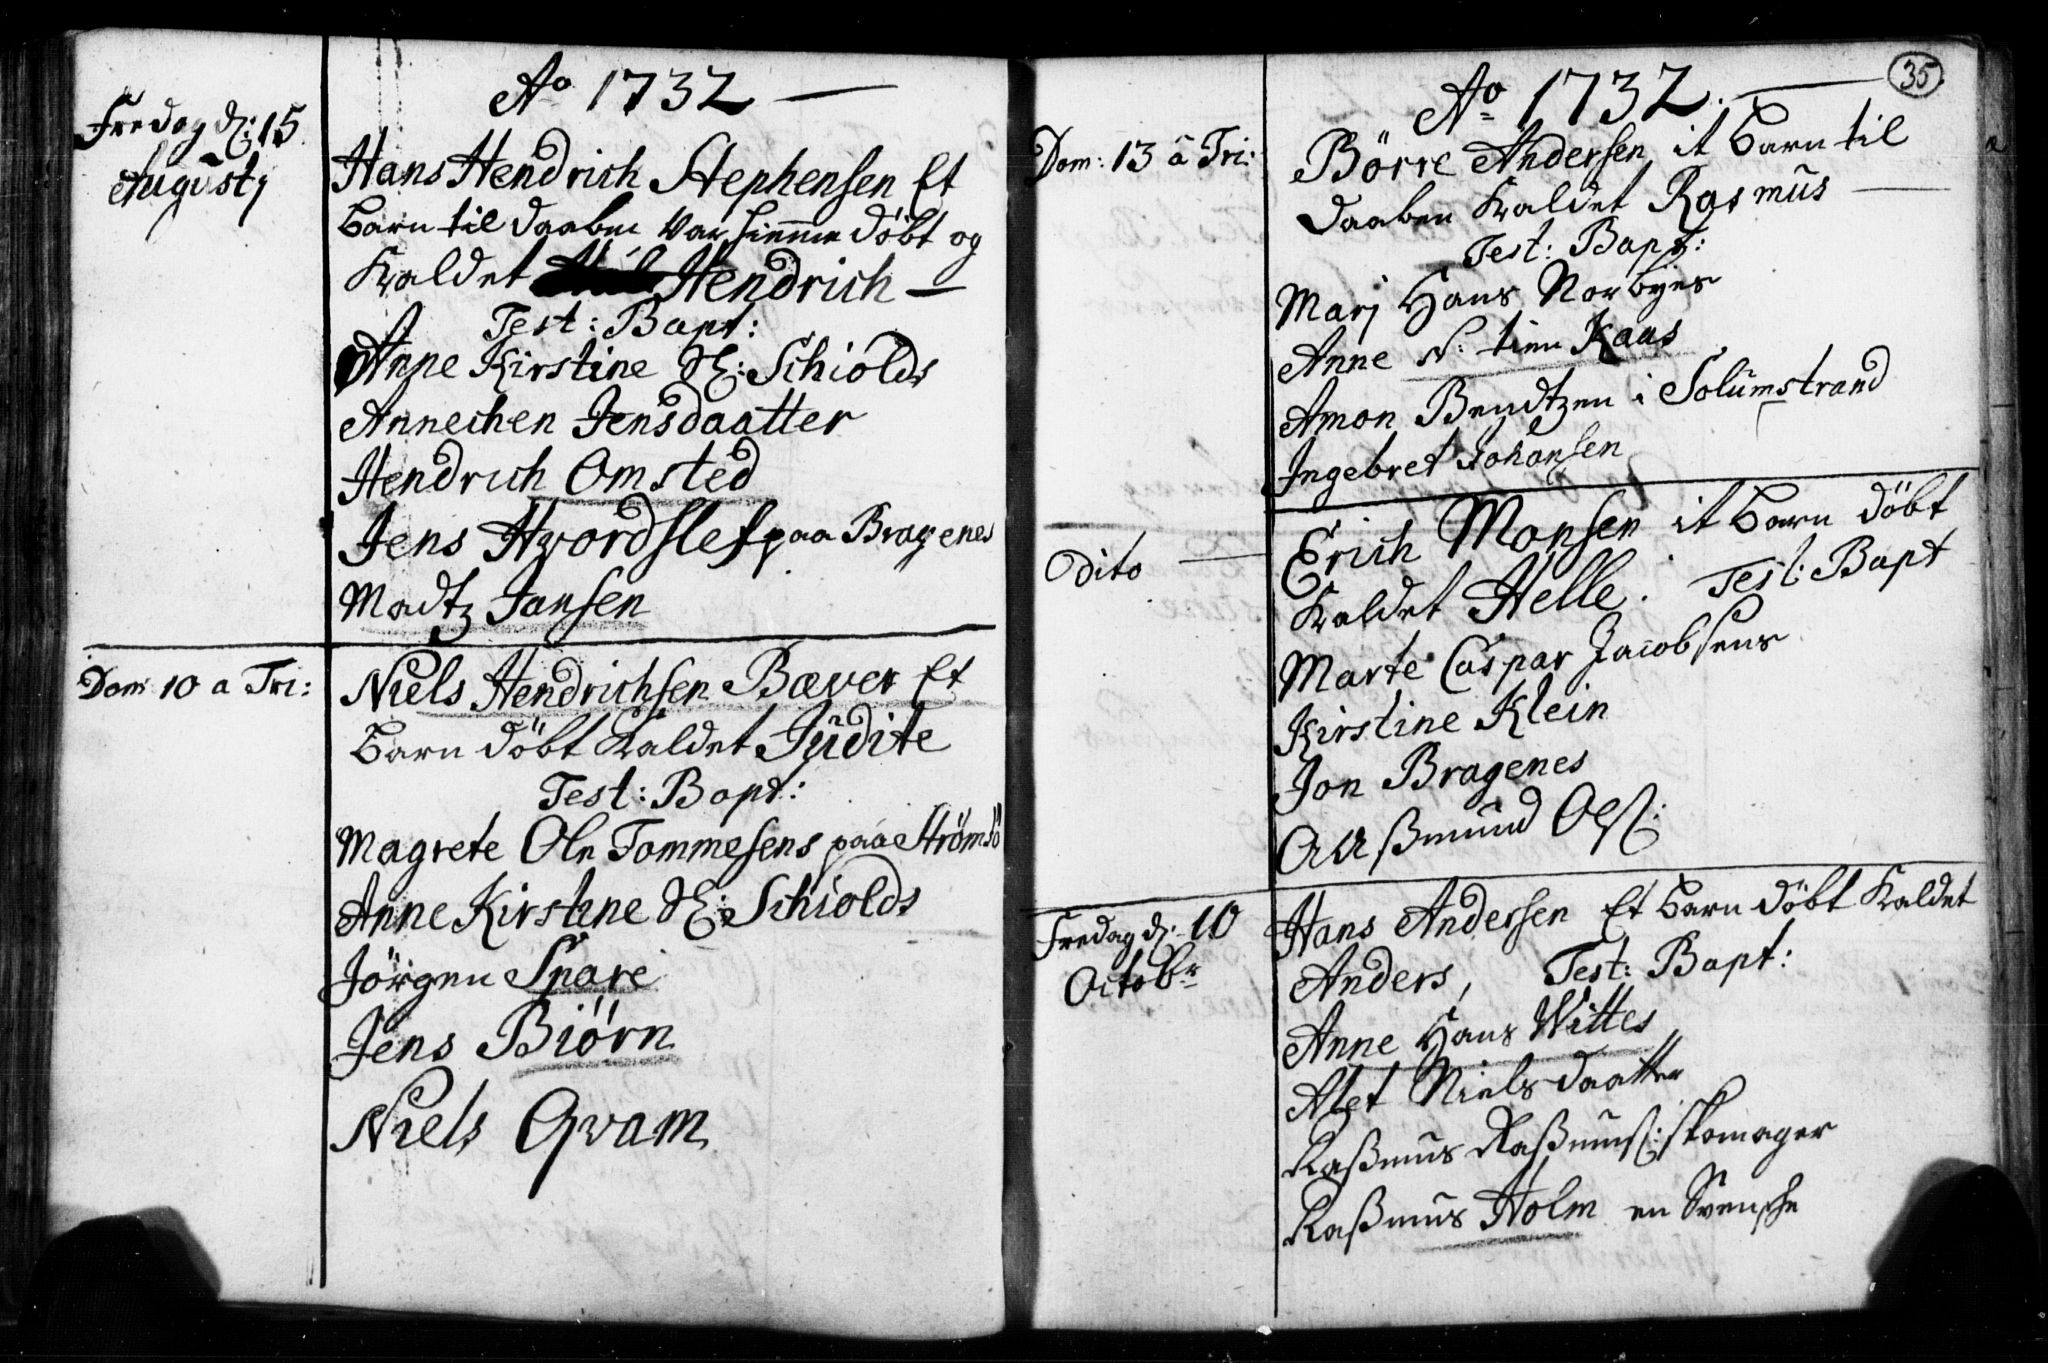 Ao 1732
Fredag d: 15
Augustj
Hans Hendrich Stephensen Et
Barn til daaben var hiemme döbt og
Kaldet Hendrich
Test: Bapt:
Anne Kirstine Sl: Schiolds
Annechen Jensdaatter
Hendrich Omsted
Jens Hvordslef paa Bragenes
Madtz Jansen
Dom 10 a Tri:
Niels Hendrichsen Bæver Et
Barn döbt Kaldet Jüdite
Test: Bapt:
Magrete Ole Tommesens paa Strömsö
Anne Kirstine Sl: Schiolds
Jörgen Spare
Jens Biörn
Niels Qvam
35
Ao 1732.
Dom: 13 a Tri:
Börre Andersen it Barn til
daaben Kaldet Rasmus
Test: Bapt:
Marj Hans Norbyes
Anne N: tien Kaas
Amon Bendtzen i Solumstrand
Ingebret Johansen
Dito
Erich Monsen it Barn döbt
Kaldet Helle. Test: Bapt
Marte Caspar Jacobsens
Kirstine Klein
Jon Bragenes
Aaßmund Ols:
Fredag d: 10
Octobr
Hans Andersen Et Barn döbt Kaldet
Anders, Test: Bapt:
Anne Hans Wittes
Alet Niels daatter
Raßmus Raßmus: skomager
Raßmus Holm en Svensche